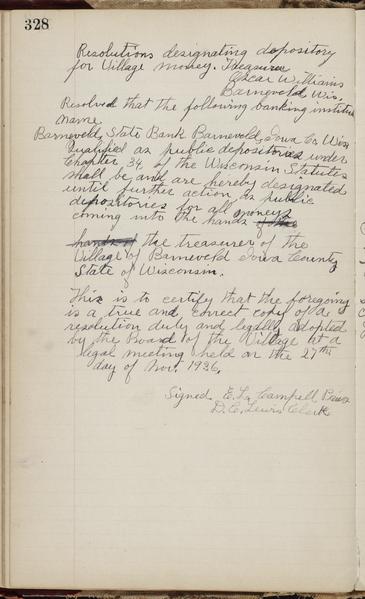 328
Resolutions designating depository
for Village money. Treasurer
Oscar Williams
Barneveld, Wis.
Resolved that the following banking
name
Barneveld State Bank Barneveld, Iowa Co. Wis.
Qualified as public depositories under
Chapter 34 of the Wisconsin Statutes
shall be and are hereby designated
until further action as public
depositories for all moneys
coming into the hands of the
hands of the treasurer of the
Village of Barneveld Iowa County
State of Wisconsin.
This is to certify that the foregoing
is a true and correct copy of a
resolution duly and legally adopted
by the Board of the Village at a
legal meeting held on the 27th
day of Nov. 1936.
Signed E. L. Campbell
D. C. Lewis Clerk